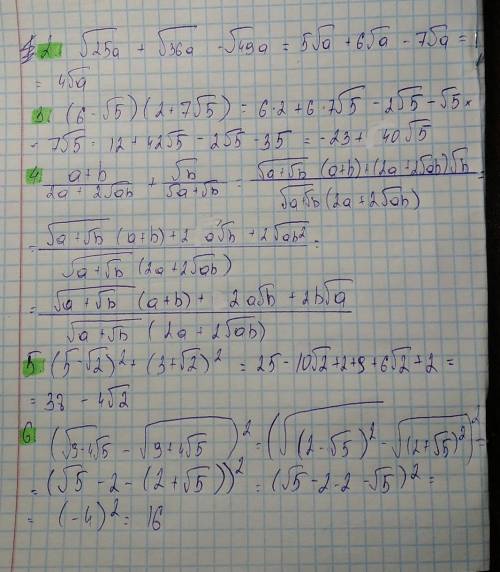 2. √25a + √36a - √49a = 5√a + 6√a - 7√a =
= 4√a
3. (6 - √5)(2 + 7√5) = 6·2 + 6·7√5 - 2√5 - √5 ×
× 7√5 = 12 + 42√5 - 2√5 - 35 = -23 + 40√5
4. (a+b)/(2a + 2√ab) + √b/(√a+√b) = (√a+√b (a+b) + (2a+2√ab)√b)/(√a+√b (2a+2√ab)) =
= (√a+√b (a+b) + 2 a√b + 2√ab²)/(√a+√b (2a+2√ab)) =
= (√a+√b (a+b) + 2a√b + 2b√a)/(√a+√b (2a+2√ab))
5. (5-√2)² + (3+√2)² = 25 - 10√2 + 2 + 9 + 6√2 + 2 =
= 38 - 4√2
6. (√9-4√5 - √9+4√5)² = (√(2-√5)² - √(2+√5)²)² =
= (√5 - 2 - (2+√5))² = (√5 - 2 - 2 - √5)² =
= (-4)² = 16